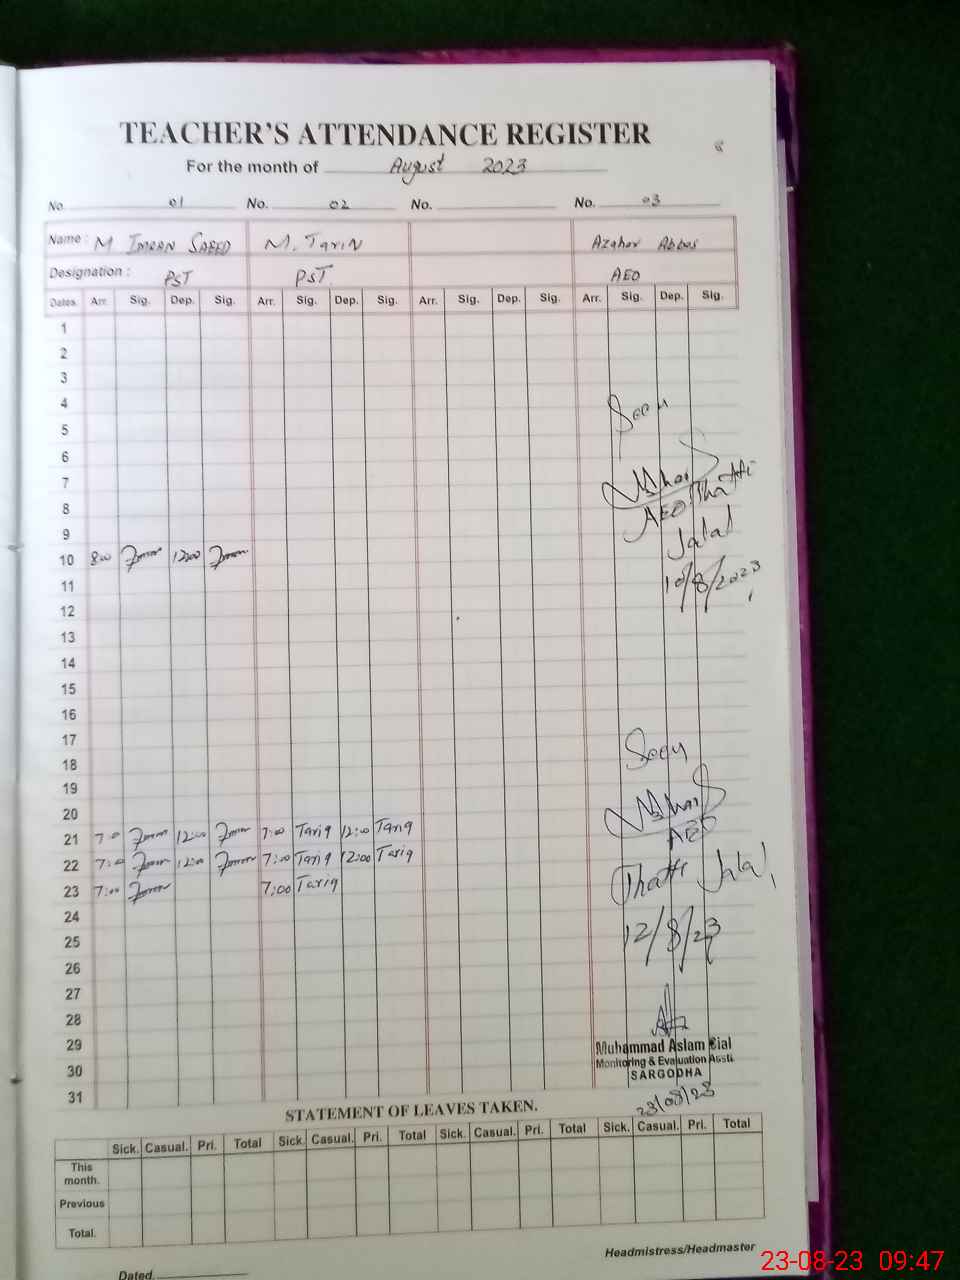 TEACHER'S ATTENDANCE REGISTER
For the month of August 2023
No. 01 No. 02 No. No. 03
Name : M Imran Saeed M. Tariq Azahar Abbas
Designation : PST PST AEO
Dates. Arr. Sig. Dep. Sig. Arr. Sig. Dep. Sig. Arr. Sig. Dep. Sig. Arr. Sig. Dep. Sig.
1
2
3
4 Seen
5
6
7
8 AEO Thatti
9 Jalal
10 8:00 12:00
11 10/8/2023
12
13
14
15
16
17
18 Seen
19
20
21 7:00 12:00 7:00 Tariq 12:00 Tariq AEO
22 7:00 12:00 7:00 Tariq 12:00 Tariq Thatti Jalal
23 7:00 7:00 Tariq
24
25 12/8/23
26
27
28
29 Muhammad Aslam Sial
30 Monitoring & Evaluation Asstt.
SARGODHA
31 23/08/23
STATEMENT OF LEAVES TAKEN.
Sick. Casual. Pri. Total Sick. Casual. Pri. Total Sick. Casual. Pri. Total Sick. Casual. Pri. Total
This
month.
Previous
Total.
Headmistress/Headmaster
Dated.
23-08-23 09:47